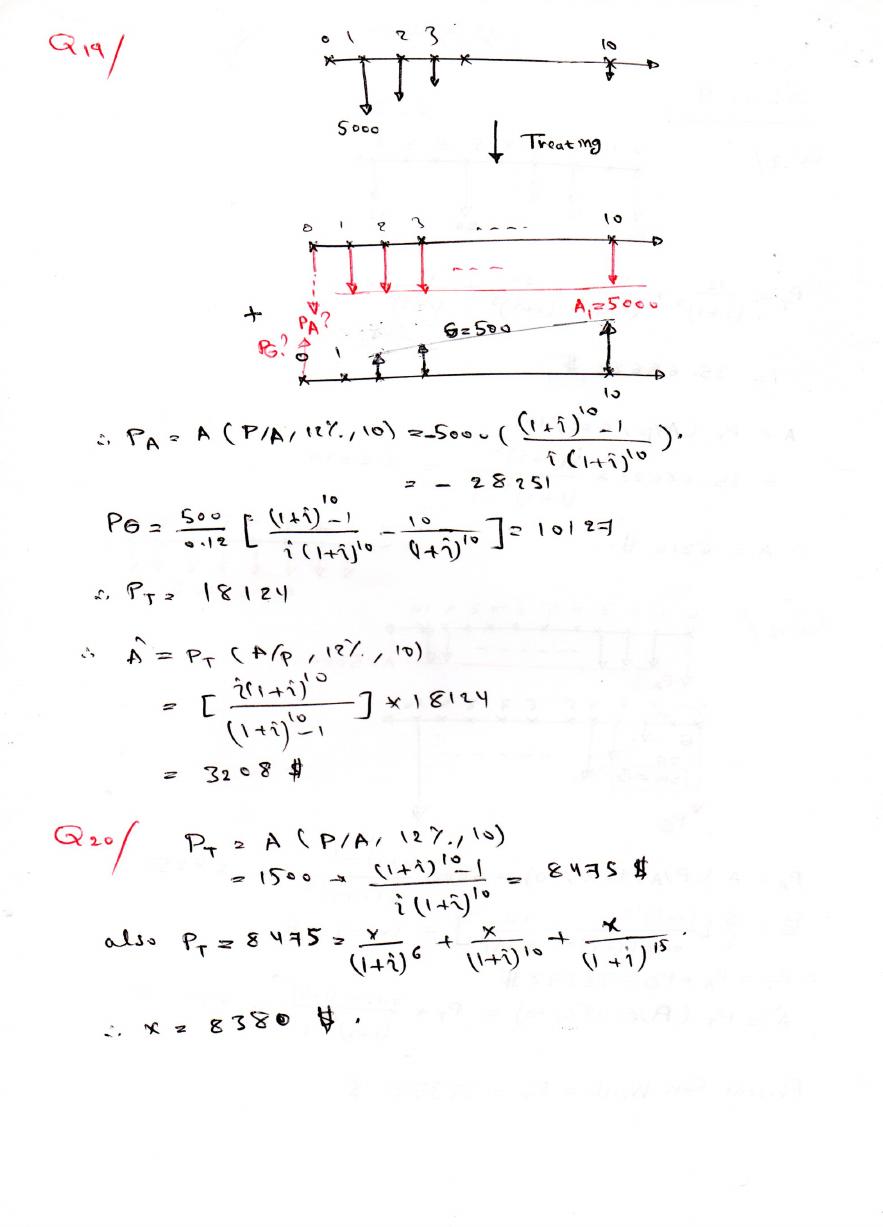 Q19/
0 1 2 3 10
5000
Treating
0 1 2 3 ---- 10
---
+
PA?
A₁=5000
PG?
0 1 G=500
10
∴ PA = A (P/A, 12%, 10) = -5000 ( ((1+i)^10 - 1) / (i(1+i)^10) ).
= - 28251
PG = 500/0.12 [ ((1+i)^10 - 1) / (i(1+i)^10) - 10/(1+i)^10 ] = 10127
∴ PT = 18124
∴ Â = PT (A/P, 12%, 10)
= [ i(1+i)^10 / ((1+i)^10 - 1) ] * 18124
= 3208 $
Q20/ PT = A (P/A, 12%, 10)
= 1500 * ((1+i)^10 - 1) / (i(1+i)^10) = 8475 $
also PT = 8475 = x/(1+i)^6 + x/(1+i)^10 + x/(1+i)^15 .
∴ x = 8380 $ .